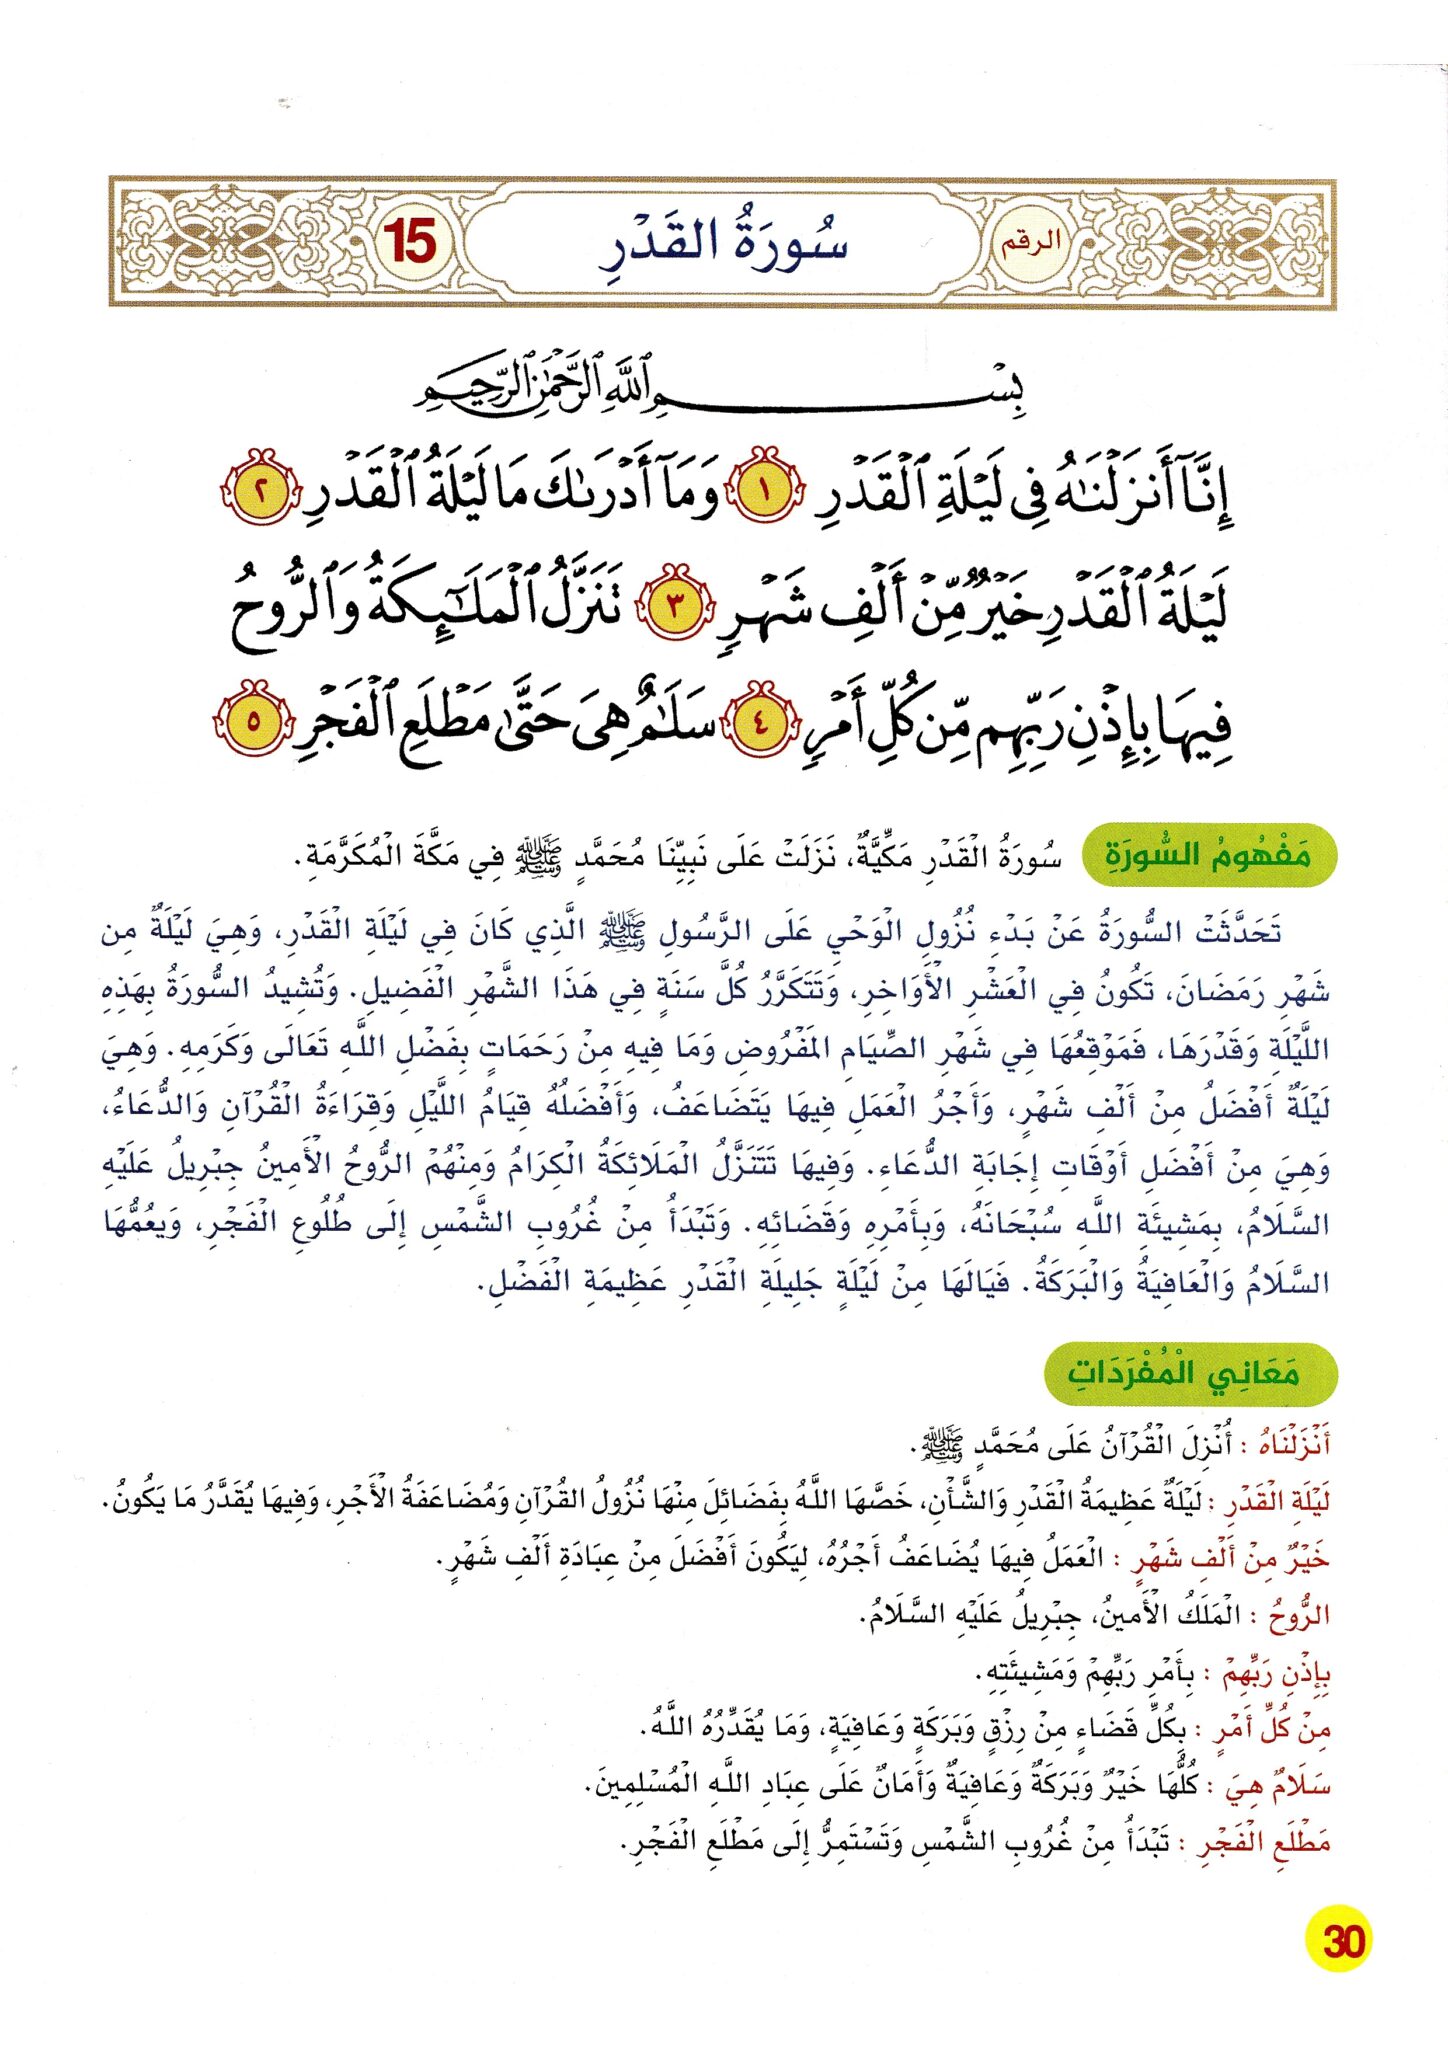 الرقم سُورَةُ القَدْرِ 15
بِسْمِ ٱللَّهِ ٱلرَّحْمَٰنِ ٱلرَّحِيمِ
إِنَّآ أَنزَلْنَٰهُ فِى لَيْلَةِ ٱلْقَدْرِ ١ وَمَآ أَدْرَىٰكَ مَا لَيْلَةُ ٱلْقَدْرِ ٢
لَيْلَةُ ٱلْقَدْرِ خَيْرٌ مِّنْ أَلْفِ شَهْرٍ ٣ تَنَزَّلُ ٱلْمَلَٰٓئِكَةُ وَٱلرُّوحُ
فِيهَا بِإِذْنِ رَبِّهِم مِّن كُلِّ أَمْرٍ ٤ سَلَٰمٌ هِىَ حَتَّىٰ مَطْلَعِ ٱلْفَجْرِ ٥
مَفْهُومُ السُّورَةِ سُورَةُ الْقَدْرِ مَكِّيَّةٌ، نَزَلَتْ عَلَى نَبِيِّنَا مُحَمَّدٍ ﷺ فِي مَكَّةَ الْمُكَرَّمَةِ.
تَحَدَّثَتْ السُّورَةُ عَنْ بَدْءِ نُزُولِ الْوَحْيِ عَلَى الرَّسُولِ ﷺ الَّذِي كَانَ فِي لَيْلَةِ الْقَدْرِ، وَهِيَ لَيْلَةٌ مِن
شَهْرِ رَمَضَانَ، تَكُونُ فِي الْعَشْرِ الْأَوَاخِرِ، وَتَتَكَرَّرُ كُلَّ سَنَةٍ فِي هَذَا الشَّهْرِ الْفَضِيلِ. وَتُشِيدُ السُّورَةُ بِهَذِهِ
اللَّيْلَةِ وَقَدْرَهَا، فَمَوْقِعُهَا فِي شَهْرِ الصِّيَامِ الْمَفْرُوضِ وَمَا فِيهِ مِنْ رَحَمَاتٍ بِفَضْلِ اللَّهِ تَعَالَى وَكَرَمِهِ. وَهِيَ
لَيْلَةٌ أَفْضَلُ مِنْ أَلْفِ شَهْرٍ، وَأَجْرُ الْعَمَلِ فِيهَا يَتَضَاعَفُ، وَأَفْضَلُهُ قِيَامُ اللَّيْلِ وَقِرَاءَةُ الْقُرْآنِ وَالدُّعَاءُ،
وَهِيَ مِنْ أَفْضَلِ أَوْقَاتِ إِجَابَةِ الدُّعَاءِ. وَفِيهَا تَتَنَزَّلُ الْمَلَائِكَةُ الْكِرَامُ وَمِنْهُمْ الرُّوحُ الْأَمِينُ جِبْرِيلُ عَلَيْهِ
السَّلَامُ، بِمَشِيئَةِ اللَّهِ سُبْحَانَهُ، وَبِأَمْرِهِ وَقَضَائِهِ. وَتَبْدَأُ مِنْ غُرُوبِ الشَّمْسِ إِلَى طُلُوعِ الْفَجْرِ، وَيَعُمُّهَا
السَّلَامُ وَالْعَافِيَةُ وَالْبَرَكَةُ. فَيَالَهَا مِنْ لَيْلَةٍ جَلِيلَةِ الْقَدْرِ عَظِيمَةِ الْفَضْلِ.
مَعَانِي الْمُفْرَدَاتِ
أَنْزَلْنَاهُ : أُنْزِلَ الْقُرْآنُ عَلَى مُحَمَّدٍ ﷺ.
لَيْلَةِ الْقَدْرِ : لَيْلَةٌ عَظِيمَةُ الْقَدْرِ وَالشَّأْنِ، خَصَّهَا اللَّهُ بِفَضَائِلَ مِنْهَا نُزُولُ الْقُرْآنِ وَمُضَاعَفَةُ الْأَجْرِ، وَفِيهَا يُقَدَّرُ مَا يَكُونُ.
خَيْرٌ مِنْ أَلْفِ شَهْرٍ : الْعَمَلُ فِيهَا يُضَاعَفُ أَجْرُهُ، لِيَكُونَ أَفْضَلَ مِنْ عِبَادَةِ أَلْفِ شَهْرٍ.
الرُّوحُ : الْمَلَكُ الْأَمِينُ، جِبْرِيلُ عَلَيْهِ السَّلَامُ.
بِإِذْنِ رَبِّهِمْ : بِأَمْرِ رَبِّهِمْ وَمَشِيئَتِهِ.
مِنْ كُلِّ أَمْرٍ : بِكُلِّ قَضَاءٍ مِنْ رِزْقٍ وَبَرَكَةٍ وَعَافِيَةٍ، وَمَا يُقَدِّرُهُ اللَّهُ.
سَلَامٌ هِيَ : كُلُّهَا خَيْرٌ وَبَرَكَةٌ وَعَافِيَةٌ وَأَمَانٌ عَلَى عِبَادِ اللَّهِ الْمُسْلِمِينَ.
مَطْلَعِ الْفَجْرِ : تَبْدَأُ مِنْ غُرُوبِ الشَّمْسِ وَتَسْتَمِرُّ إِلَى مَطْلَعِ الْفَجْرِ.
30